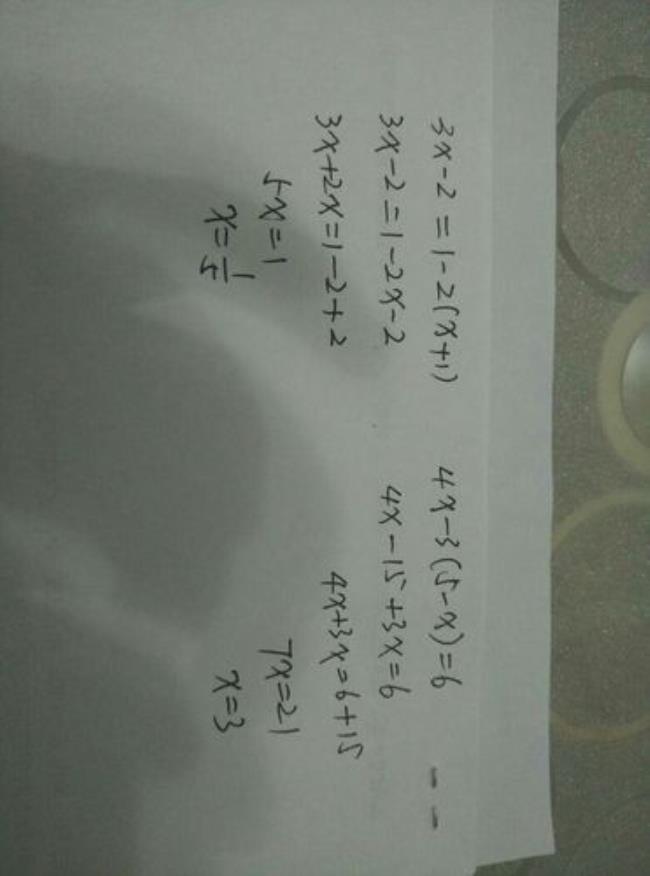 3x-2=1-2(x+1)
3x-2=1-2x-2
3x+2x=1-2+2
5x=1
x=1/5
4x-3(5-x)=6
4x-15+3x=6
4x+3x=6+15
7x=21
x=3